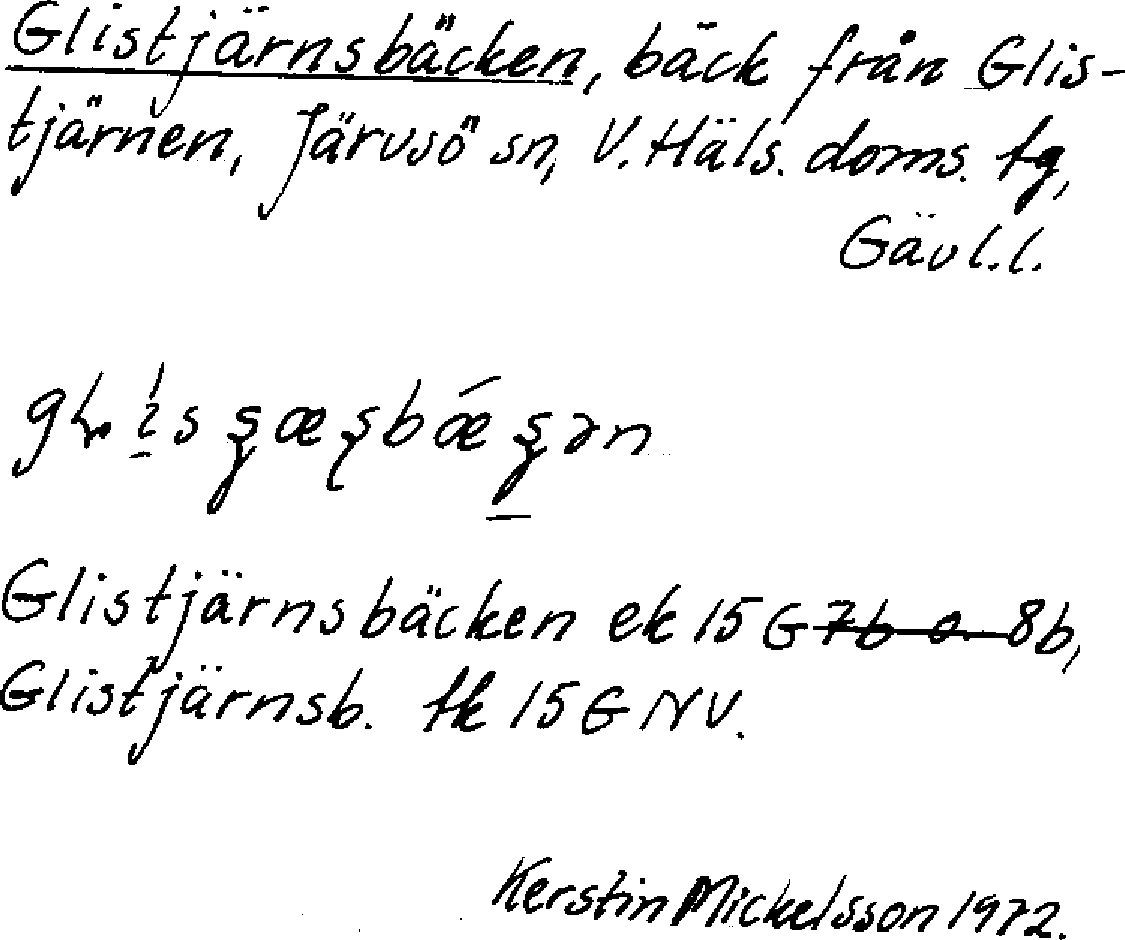 Glistjärnsbäcken, bäck från Glis-
tjärnen, Järvsö sn, V. Häls. doms. tg,
Gävl.l.
Glistjärnsbäcken ek 15 G 7b o. 8b,
Glistjärnsb. tk 15 G NV.
Kerstin Mickelsson 1972.